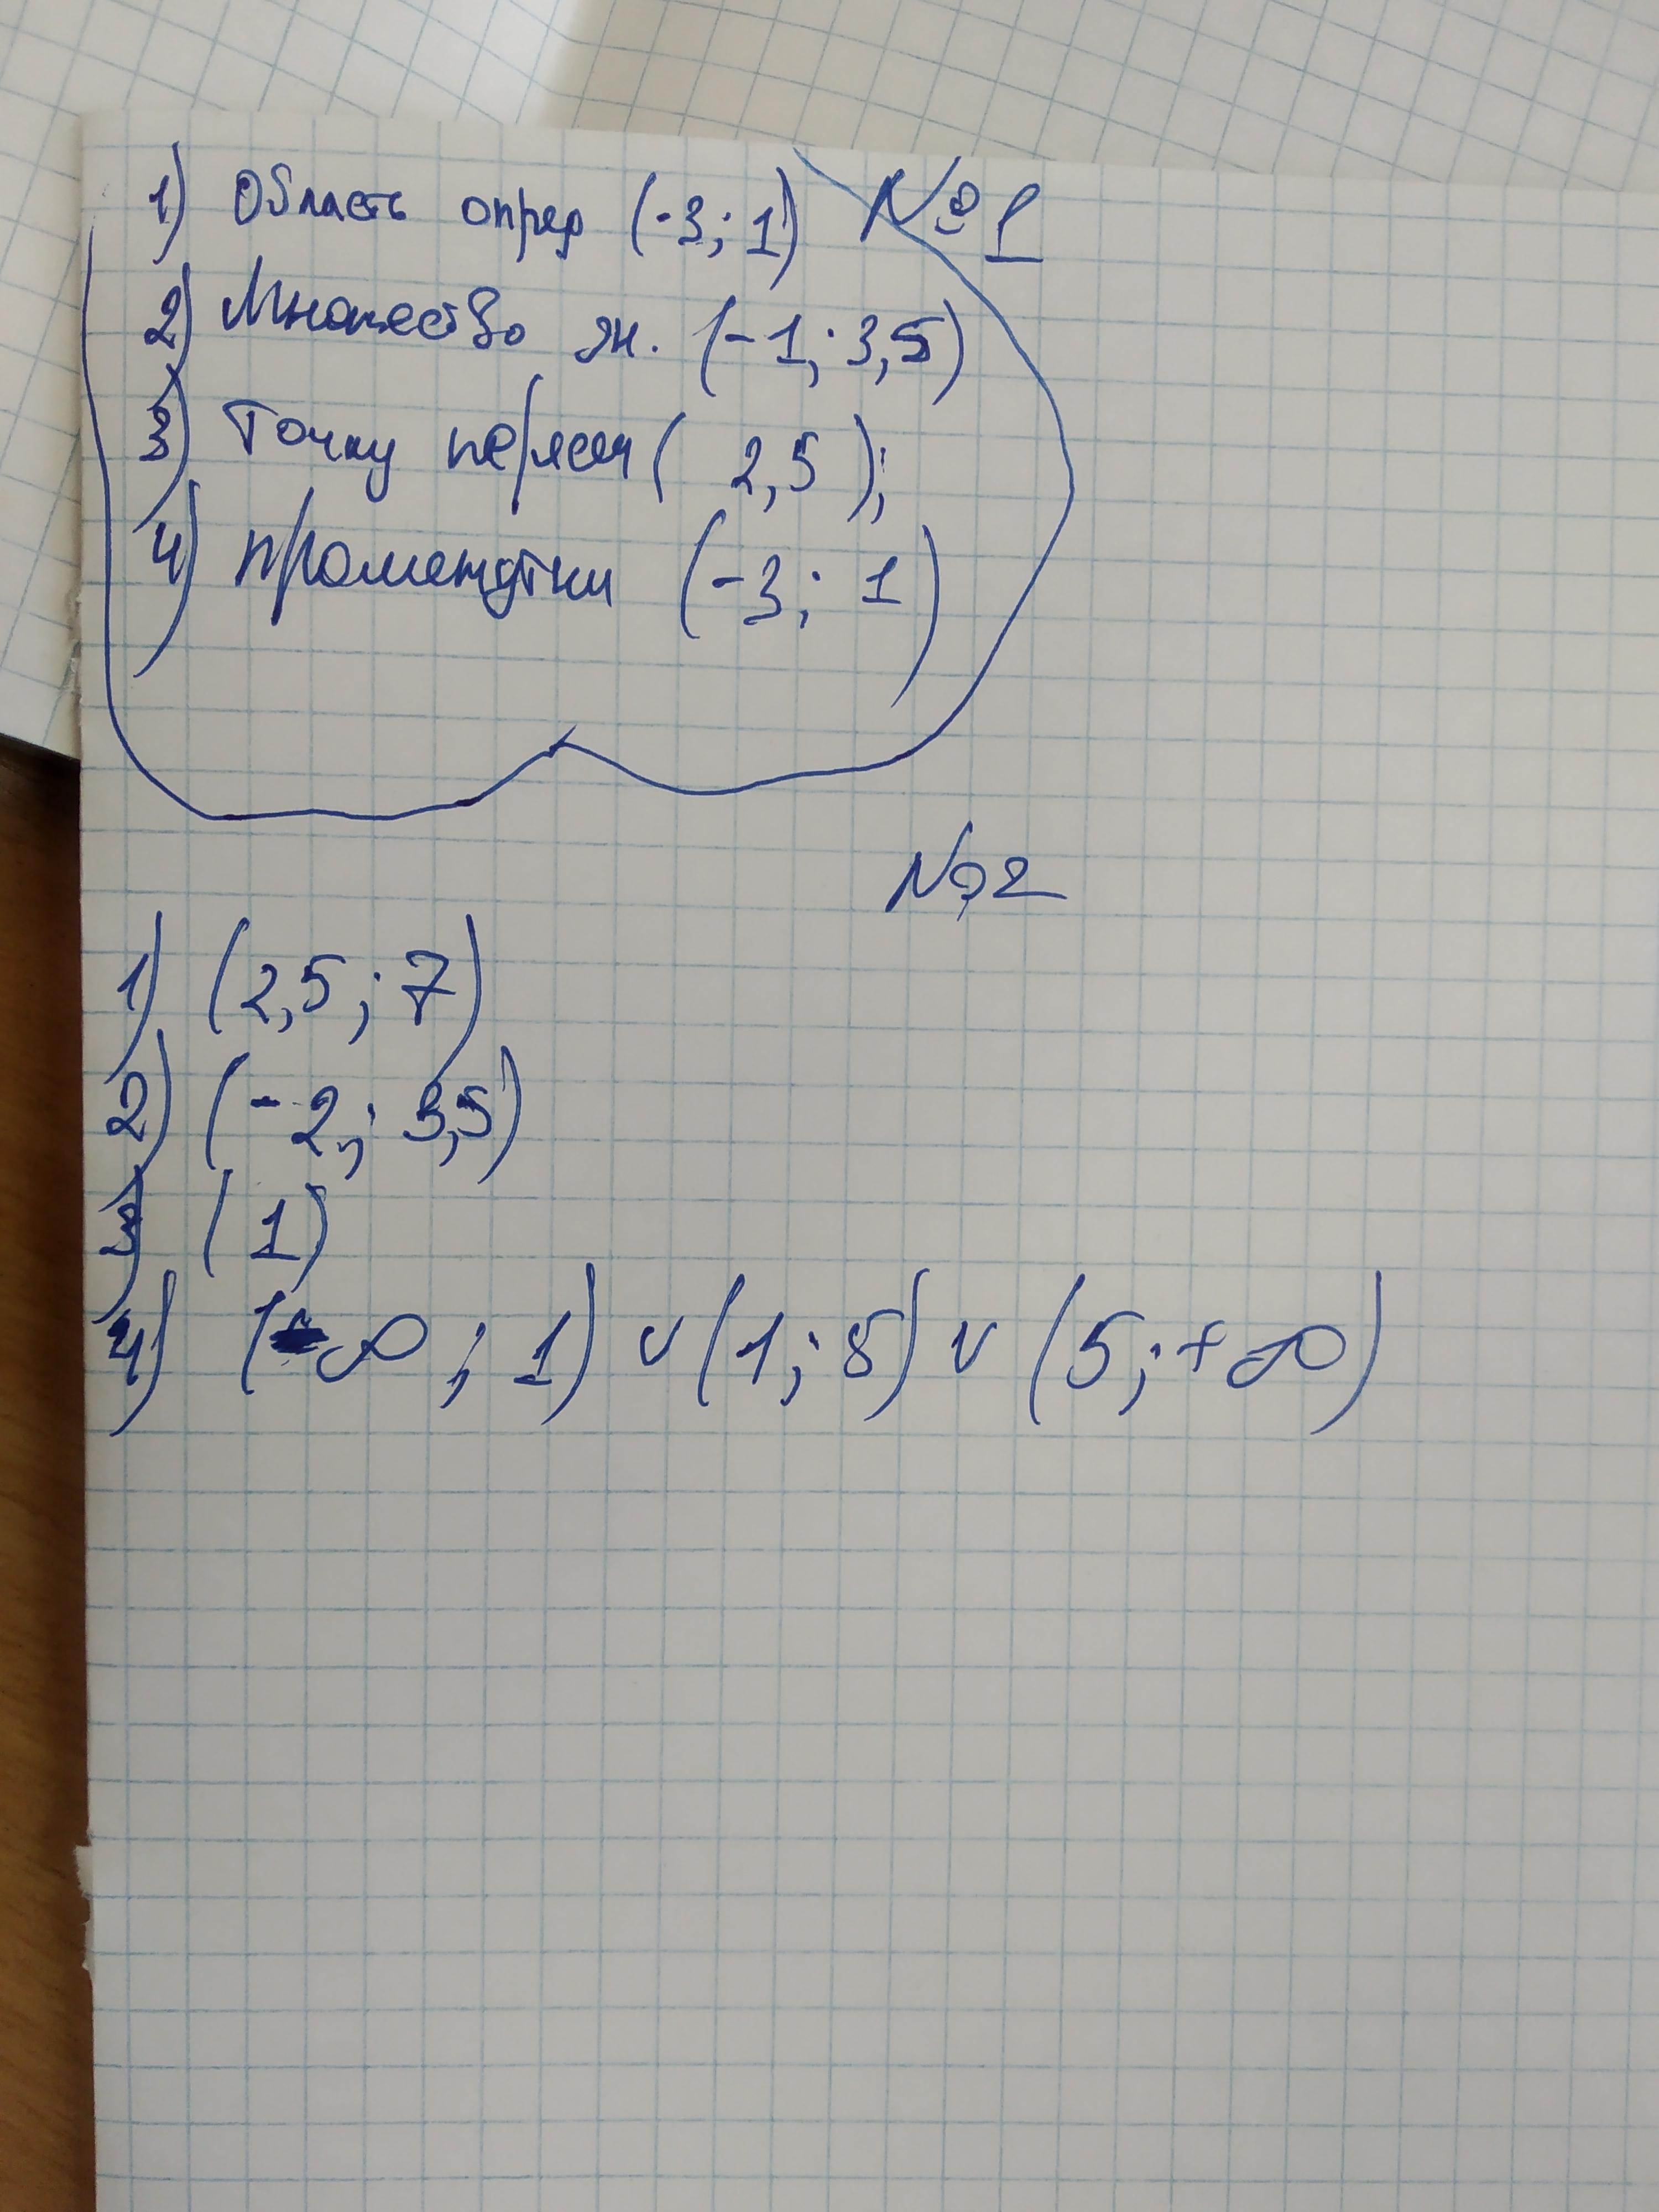 1) Область опред (-3; 1) №1
2) Множество зн. (-1; 3,5)
3) Точку пересеч ( 2,5 );
4) промежутки (-3; 1)
№2
1) (2,5; 7)
2) (-2; 3,5)
3) (1)
4) (-∞; 1) ∨ (1; 5) ∨ (5; +∞)